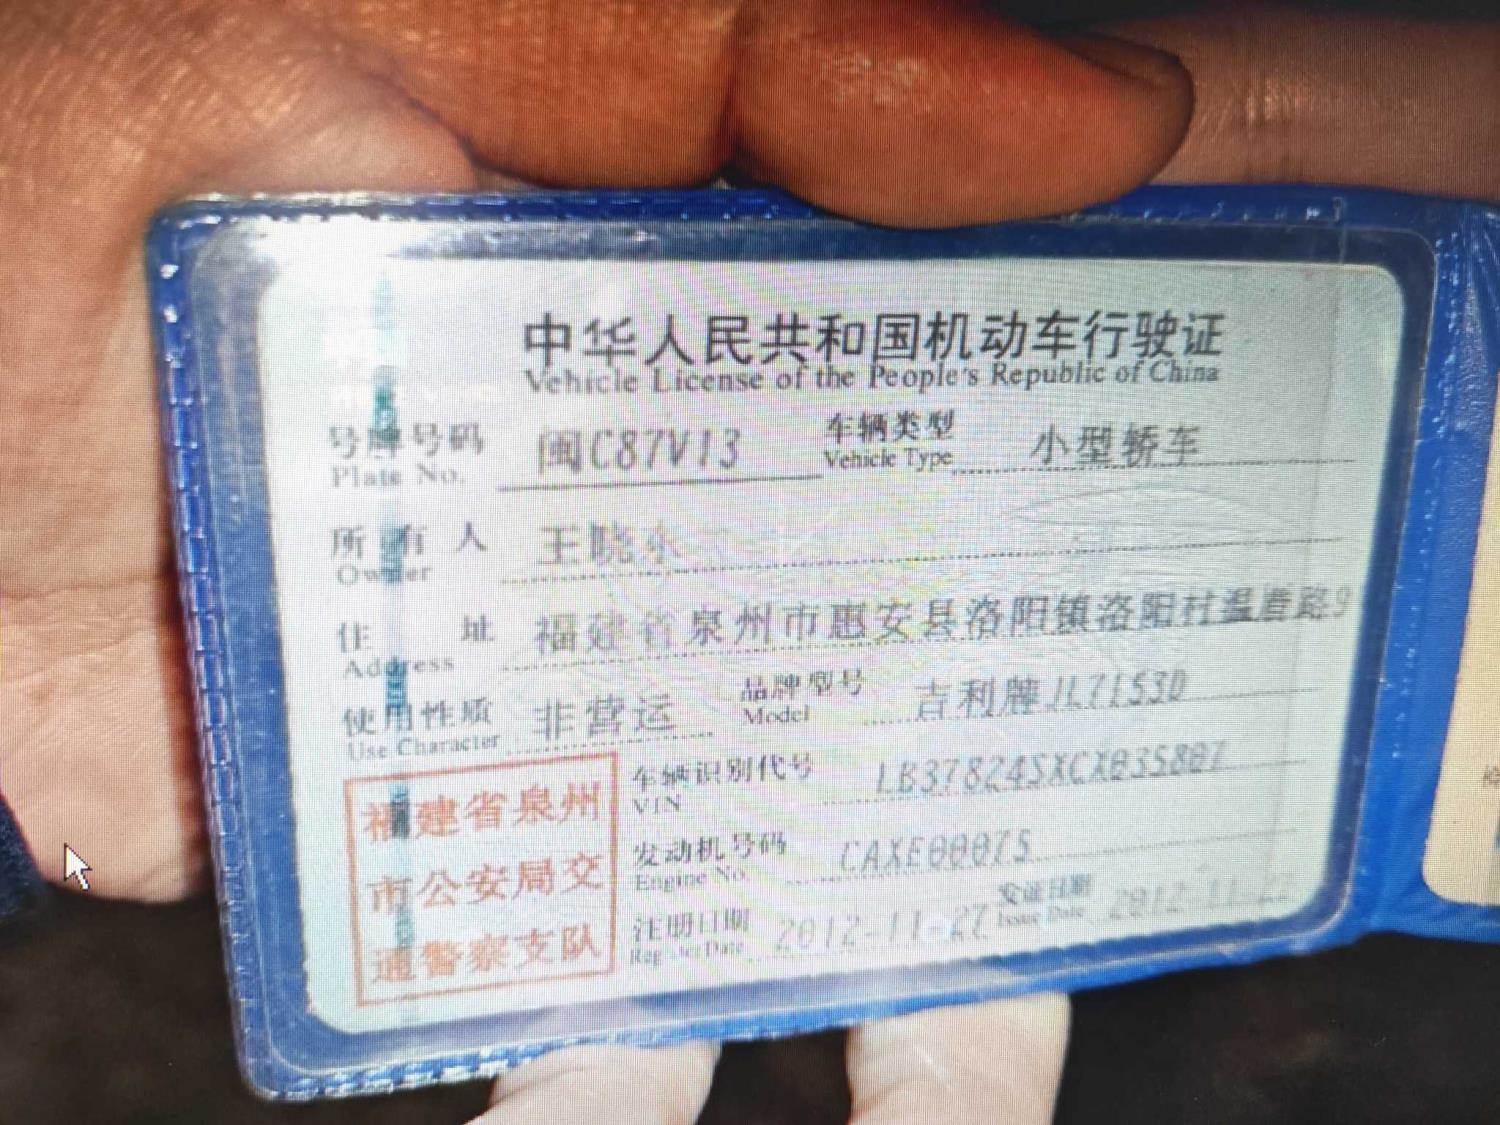 中华人民共和国机动车行驶证
Vehicle License of the People's Republic of China
号牌号码 闽C87V13 车辆类型 小型轿车
Plate No. Vehicle Type
所有人 王晓东
Owner
住址 福建省泉州市惠安县洛阳镇洛阳村温厝路9
Address
使用性质 非营运 品牌型号 吉利牌JL7153D
Use Character Model
车辆识别代号 LB37824SXCX035807
VIN
发动机号码 CAXE00075
Engine No.
注册日期 2012-11-27 发证日期 2012-11-27
Register Date Issue Date
福建省泉州
市公安局交
通警察支队